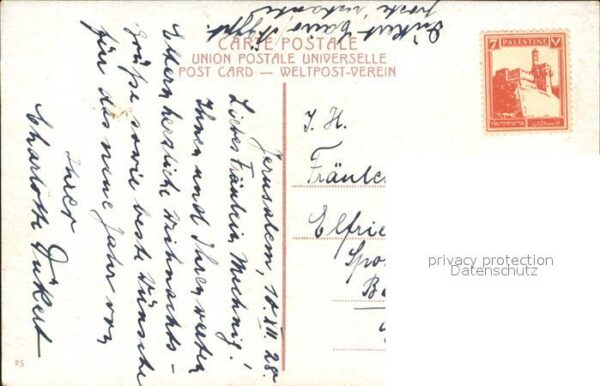 Dükert Cairo Ägypt.
poste restante
CARTE POSTALE
UNION POSTALE UNIVERSELLE
POST CARD — WELTPOST-VEREIN
7 PALESTINE 7
Jerusalem, 10. XII. 28.
Liebes Fräulein Mechnig!
Ihnen und Ihren werten
Eltern herzliche Weihnachts-
Grüße sowie beste Wünsche
für das neue Jahr von
Ihrer
Charlotte Dükert
I. H.
Fräulei
Elfrie
Spo
25
privacy protection
Datenschutz